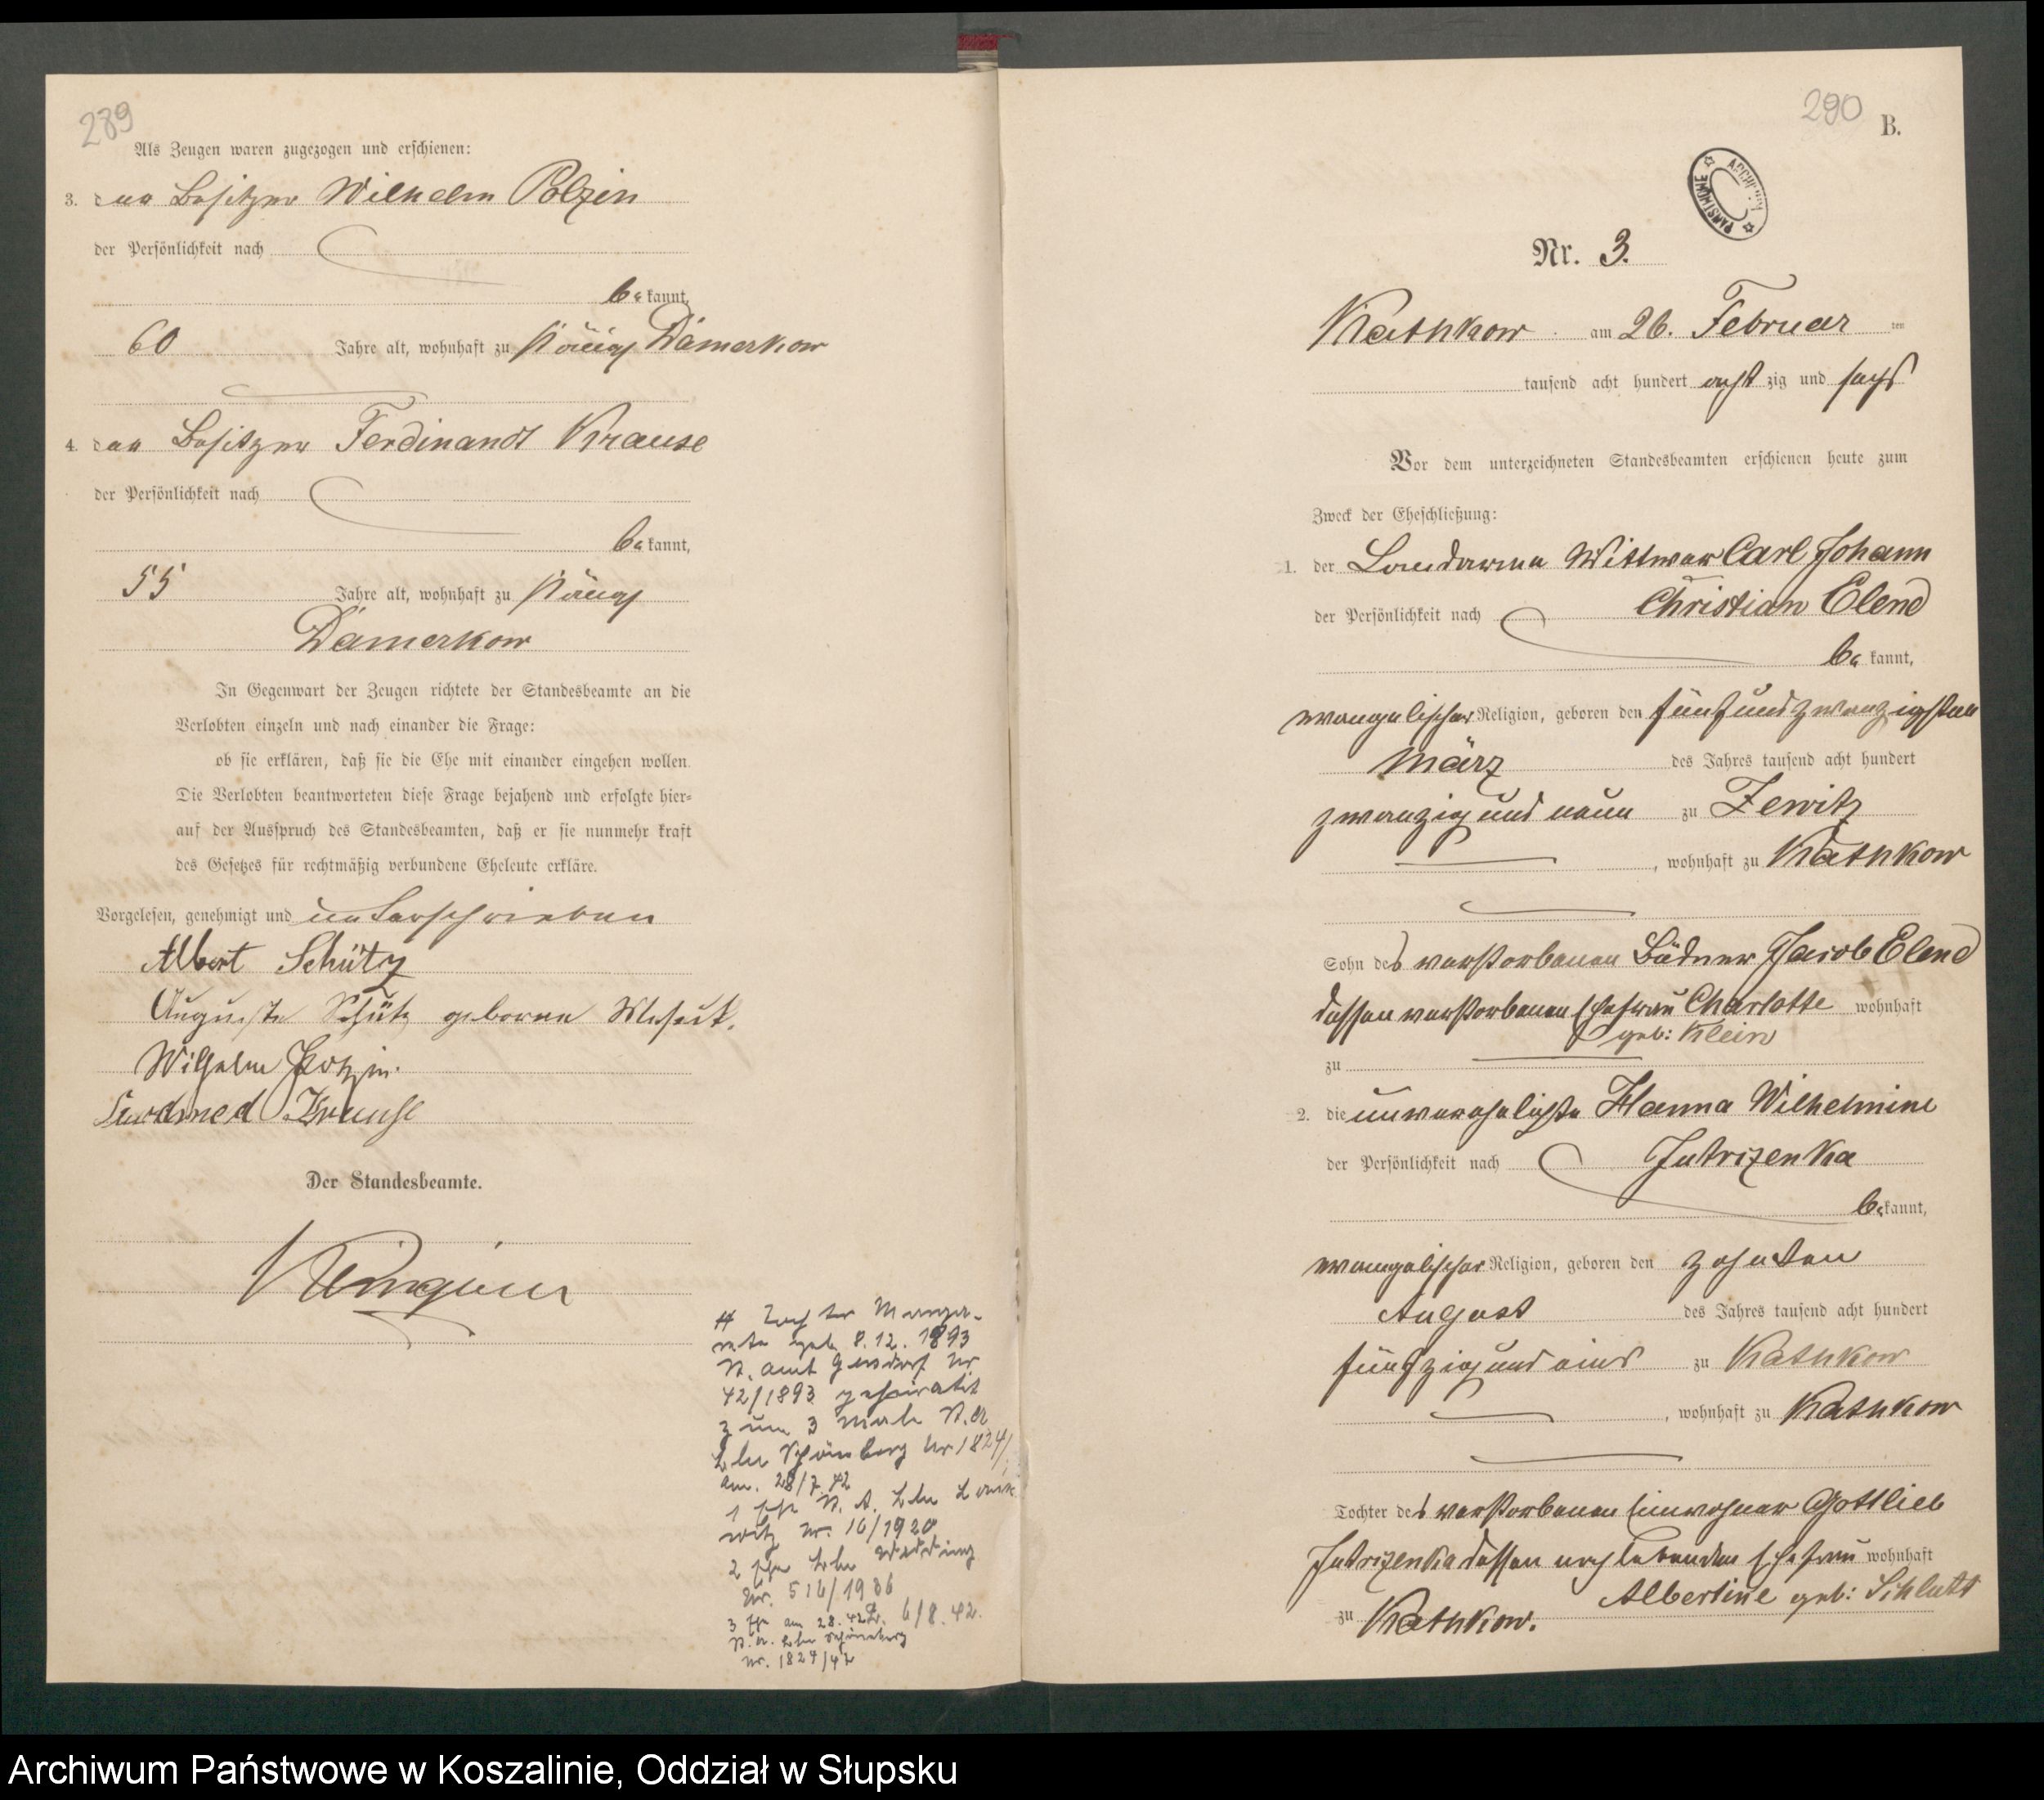 289
Als Zeugen waren zugezogen und erschienen:
3. der Besitzer Wilhelm Polzin
der Persönlichkeit nach
be kannt,
60 Jahre alt, wohnhaft zu Königl Damerkow
4. der Besitzer Ferdinandt Krause
der Persönlichkeit nach
be kannt,
55 Jahre alt, wohnhaft zu Königl
Damerkow
In Gegenwart der Zeugen richtete der Standesbeamte an die
Verlobten einzeln und nach einander die Frage:
ob sie erklären, daß sie die Ehe mit einander eingehen wollen.
Die Verlobten beantworteten diese Frage bejahend und erfolgte hier-
auf der Ausspruch des Standesbeamten, daß er sie nunmehr kraft
des Gesetzes für rechtmäßig verbundene Eheleute erkläre.
Vorgelesen, genehmigt und unterschrieben
Albert Schütz
Auguste Schütz geborne
Wilhelm Polzin.
Krause
Der Standesbeamte.
Tochter Marga-
geb. 8.12.1893
St. amt Nr
42/1893 geheiratet
zum 3 Male St. A
Bln Schöneberg Nr 1824/
am. 28/7.42
1 Ehe St. A. Bln
witz Nr. 16/1920
2 Ehe Bln Wedding
Nr. 516/1936
3 Ehe am 28. 6/8.42.
St. A. Bln Schöneberg
Nr. 1824/42
290
B.
ARCHIWUM PAŃSTWOWE
Nr. 3.
Kathkow am 26. Februar ten
tausend acht hundert acht zig und sechs
Vor dem unterzeichneten Standesbeamten erschienen heute zum
Zweck der Eheschließung:
1. der Landarme Wittwer Carl Johann
Christian Elend
der Persönlichkeit nach
be kannt,
evangelischer Religion, geboren den fünfundzwanzigsten
März des Jahres tausend acht hundert
zwanzig und neun zu Zewitz
, wohnhaft zu Kathkow
Sohn des verstorbenen Büdner Jacob Elend
dessen verstorbenen Ehefrau Charlotte wohnhaft
geb: Klein
zu
2. die unverehelichte Hanna Wilhelmine
der Persönlichkeit nach Jutrizenka
be kannt,
evangelischer Religion, geboren den zehnten
August des Jahres tausend acht hundert
fünfzig und eins zu Kathkow
, wohnhaft zu Kathkow
Tochter des verstorbenen Einwohner Gottlieb
Jutrizenka dessen noch lebenden Ehefrau wohnhaft
Albertine geb: Schlutt
zu Kathkow.
Archiwum Państwowe w Koszalinie, Oddział w Słupsku